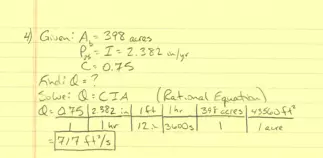 4) Given: A_b = 398 acres
P_25 = I = 2.382 in/yr
C = 0.75
Find: Q = ?
Solve: Q = CIA (Rational Equation)
Q = 0.75 | 2.382 in | 1 ft | 1 hr | 398 acres | 43560 ft²
1 | 1 hr | 12 in | 3600s | 1 | 1 acre
= 717 ft³/s